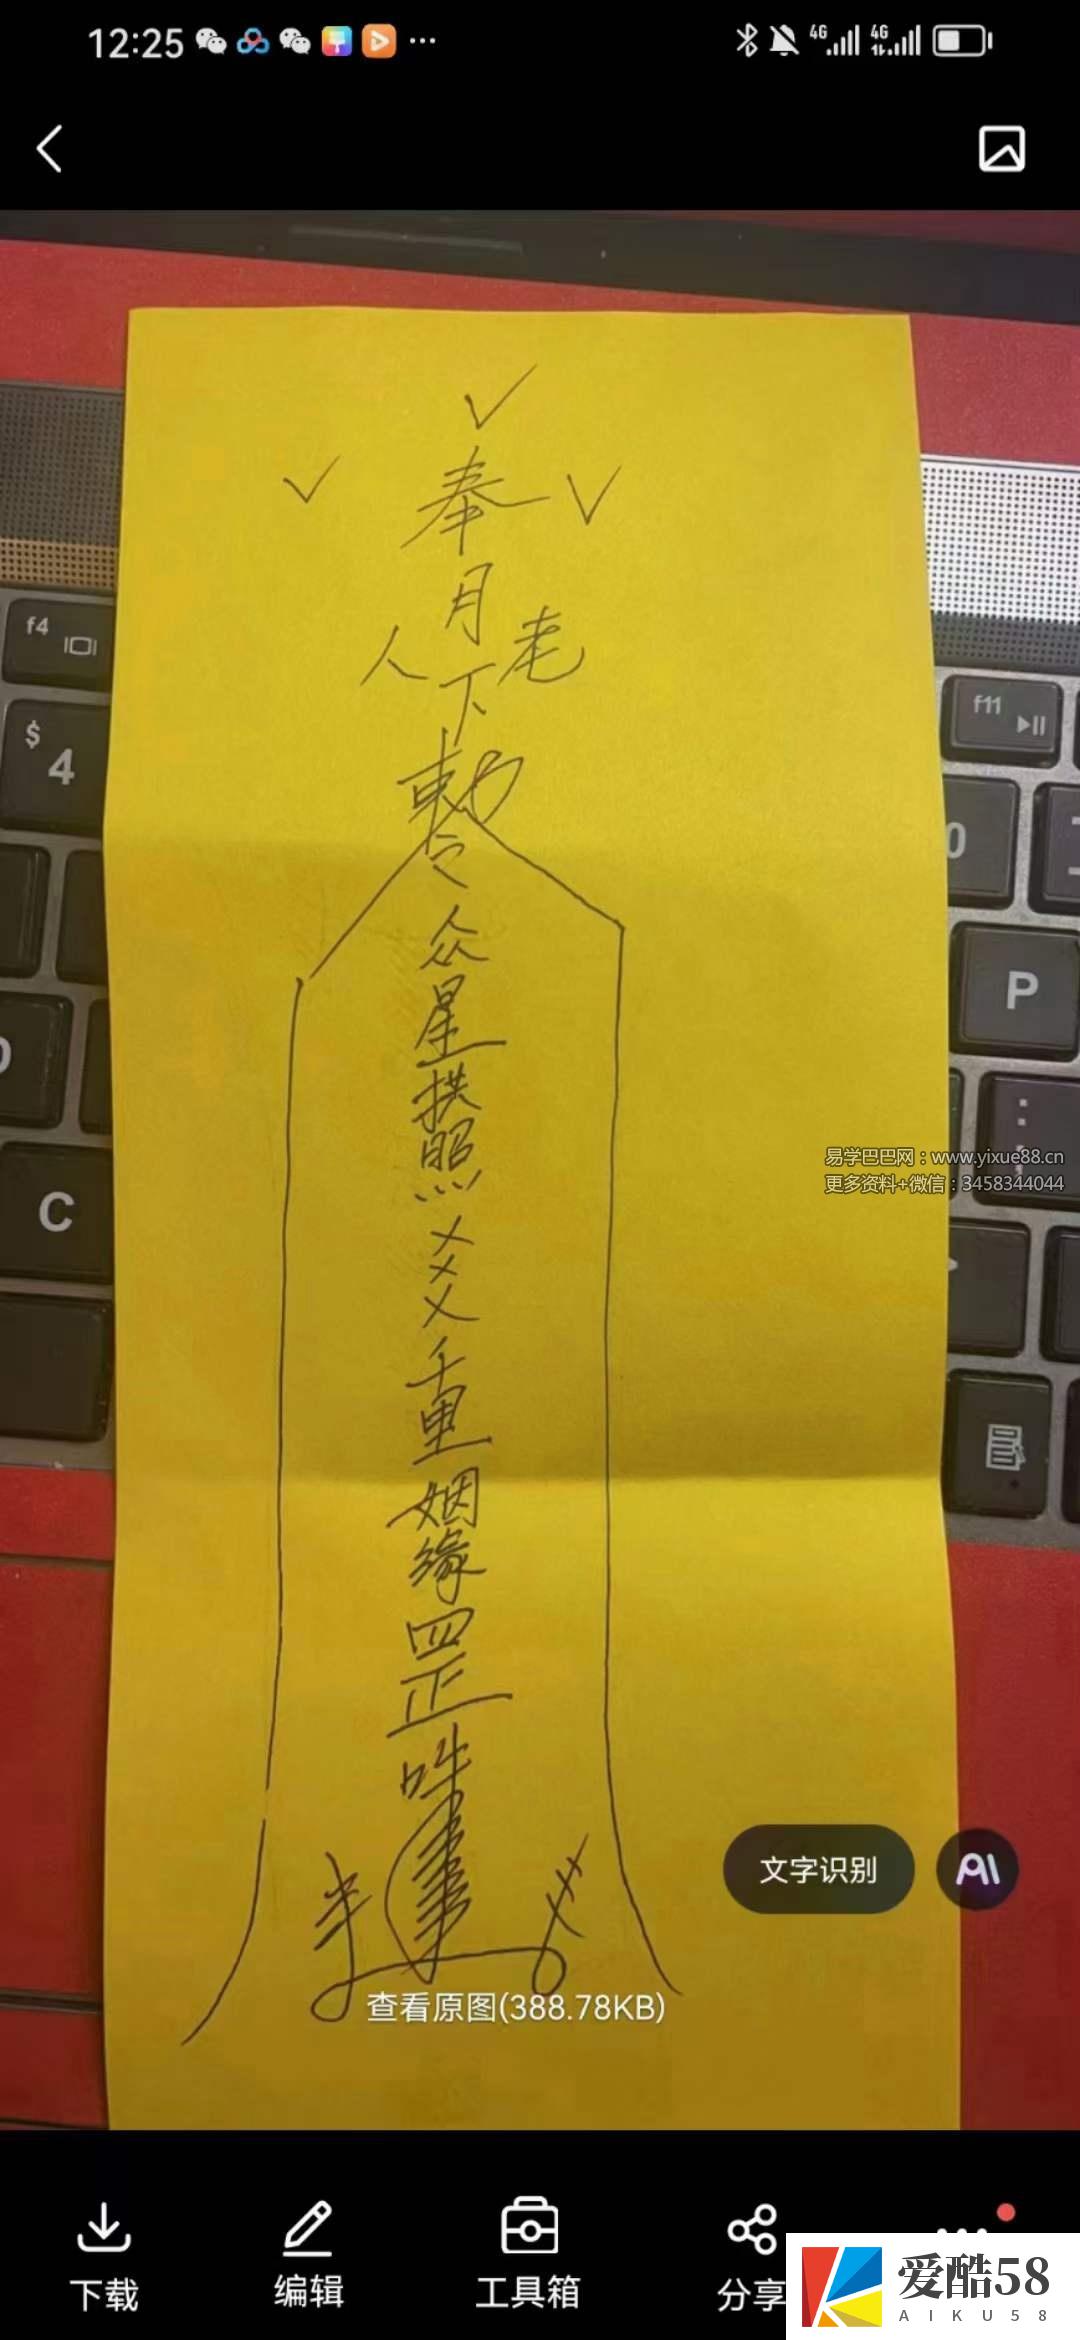 12:25
4G
4G
奉
月
人下老
敕
令
众
星
拱
照
爻
重
姻
缘
罡
f4
$
4
C
f11
0
P
易学巴巴网：www.yixue88.cn
更多资料+微信：3458344044
文字识别
AI
查看原图(388.78KB)
下载
编辑
工具箱
分享
爱酷58
AIKU58